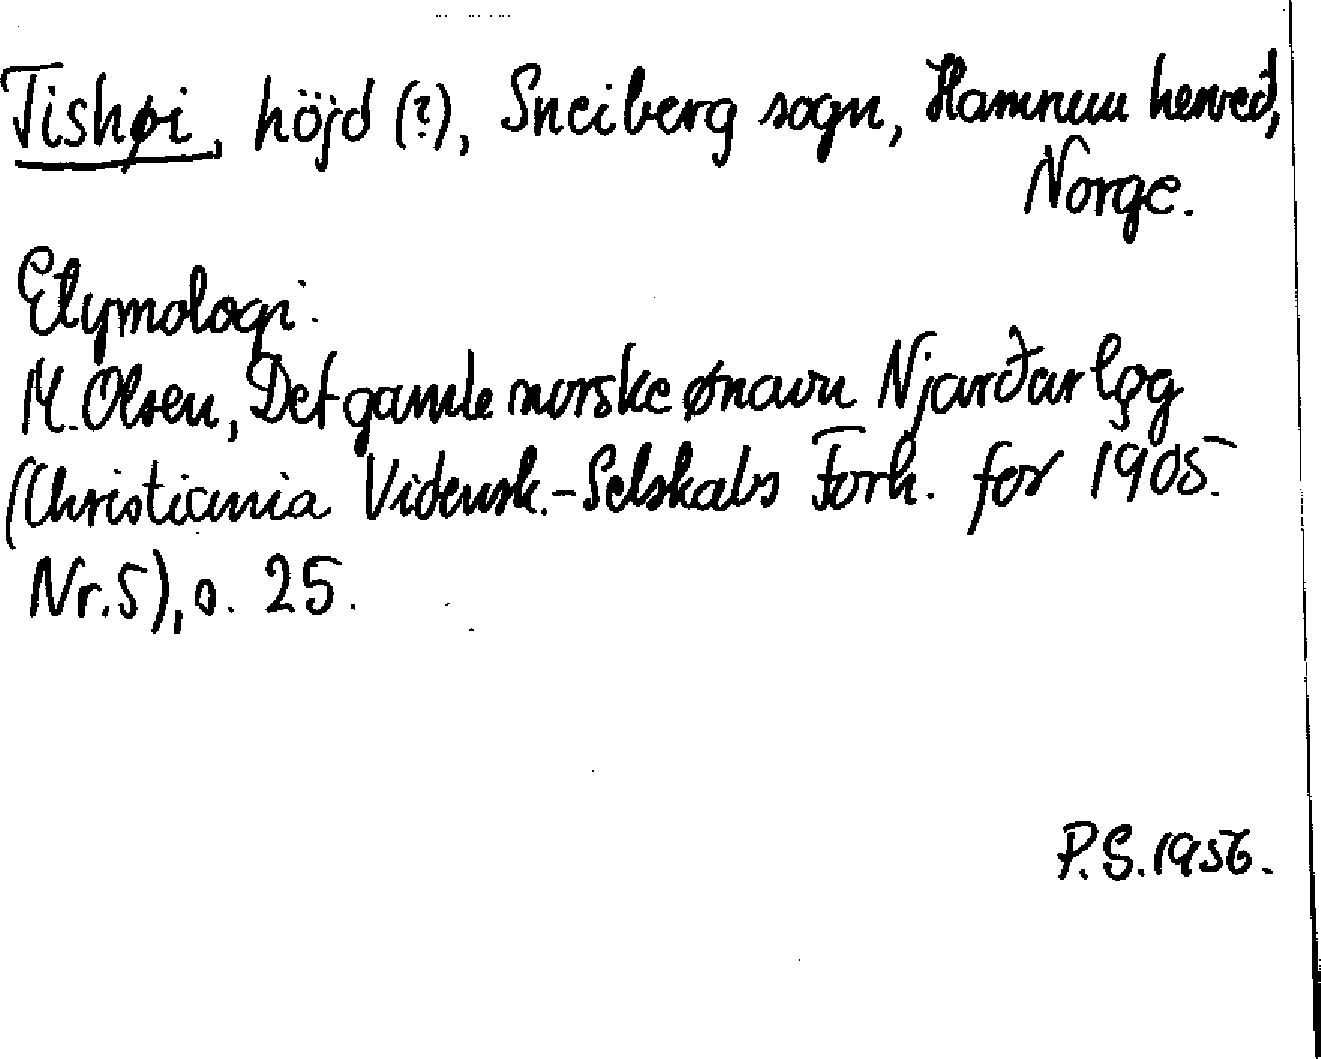 Tishøi, höjd (?), Sneiberg sogn, Hammrum herred,
Norge.
Etymologi:
M. Olsen, Det gamle norske ønavn Njarðarlǫg
(Christiania Vidensk.-Selskabs Forh. for 1905.
Nr. 5), s. 25.
P.S. 1956.